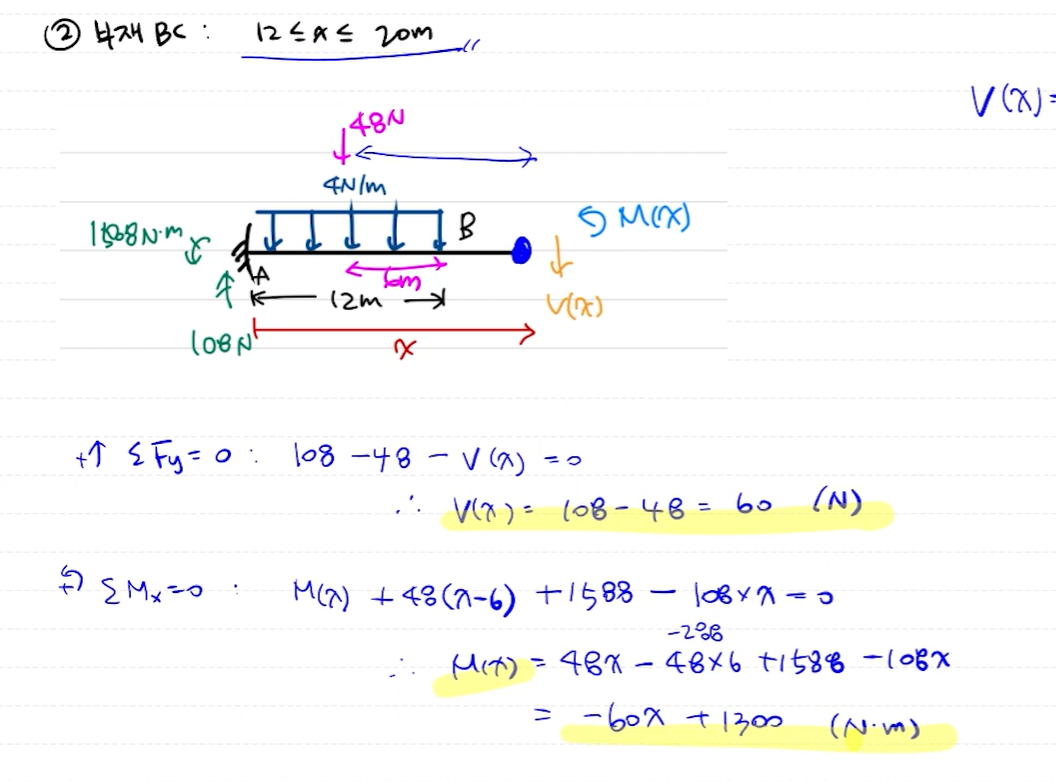 ② 부재 BC : 12 ≤ x ≤ 20m
V(x)=
48N
4N/m
1588N·m
B
M(x)
A
6m
12m
V(x)
108N
x
+↑ ΣFy = 0 : 108 - 48 - V(x) = 0
∴ V(x) = 108 - 48 = 60 (N)
+↺ ΣMx = 0 : M(x) + 48(x-6) + 1588 - 108×x = 0
-288
∴ M(x) = 48x - 48×6 + 1588 - 108x
= -60x + 1300 (N·m)